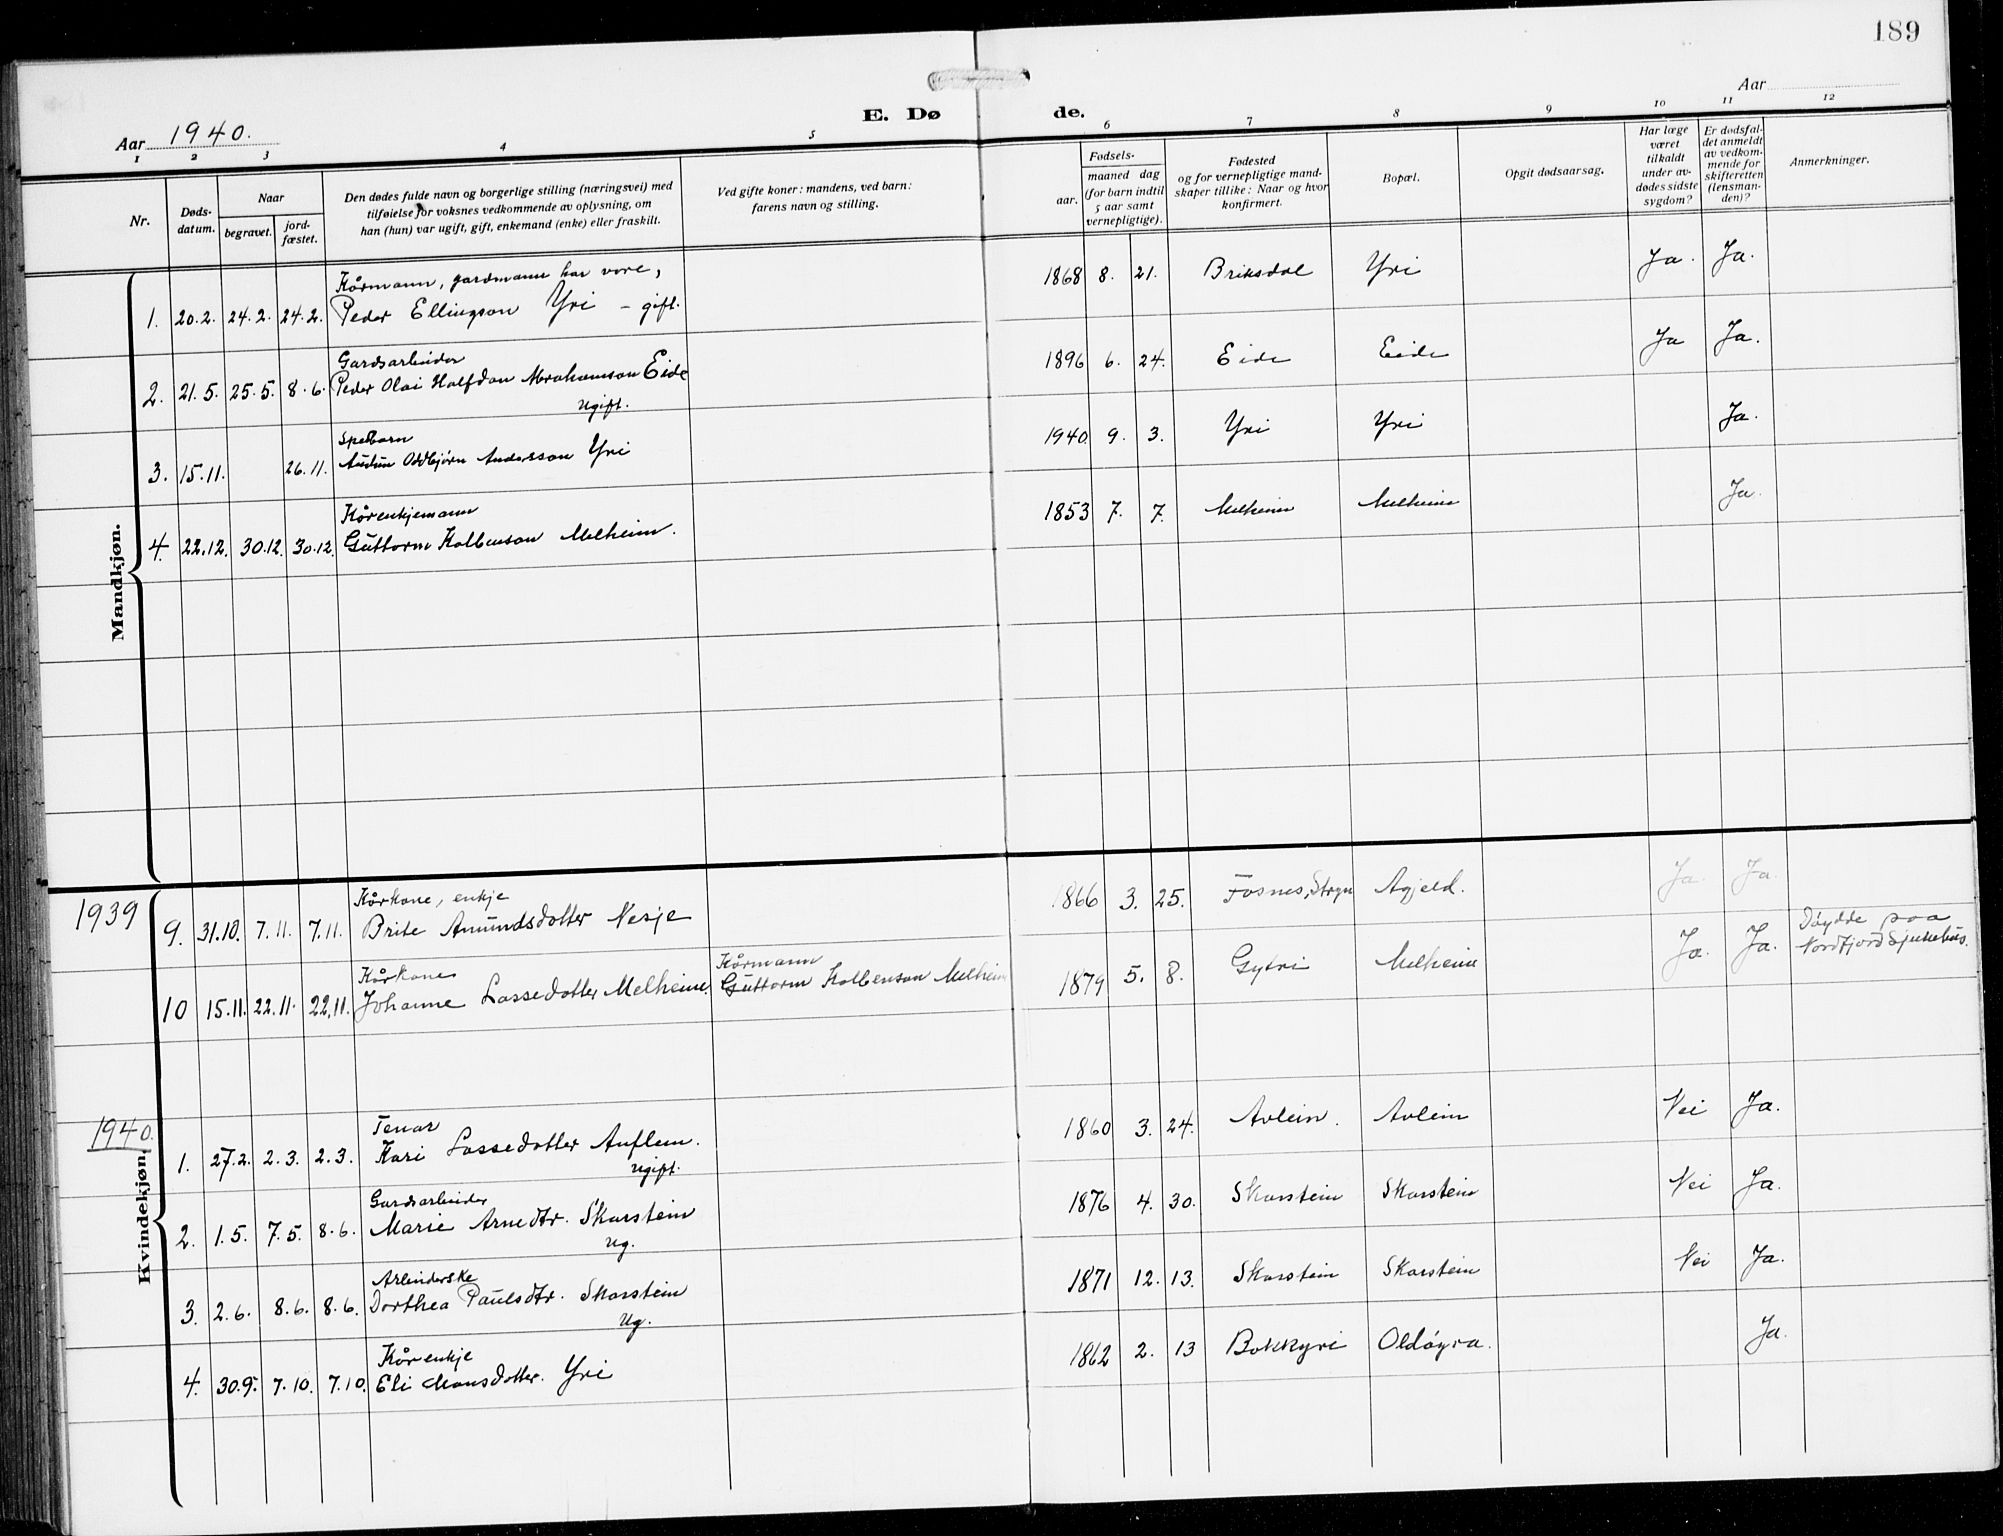 189
Aar 1940.
E. Dø
de.
Aar
1 2 3 4 5 6 7 8 9 10 11 12
Nr.
Døds-
datum.
Naar
begravet.
jord-
fæstet.
Den dødes fulde navn og borgerlige stilling (næringsvei) med
tilføielse for voksnes vedkommende av oplysning, om
han (hun) var ugift, gift, enkemand (enke) eller fraskilt.
Ved gifte koner: mandens, ved barn:
farens navn og stilling.
Fødsels-
aar.
maaned dag
(for barn indtil
5 aar samt
vernepligtige).
Fødested
og for vernepligtige mand-
skaper tillike: Naar og hvor
konfirmert.
Bopæl.
Opgit dødsaarsag.
Har læge
været
tilkaldt
under av-
dødes sidste
sygdom?
Er dødsfal-
det anmeldt
av vedkom-
mende for
skifteretten
(lensman-
den)?
Anmerkninger.
Mandkjøn.
Kårmann, gardmann har vore,
1. 20.2. 24.2. 24.2. Peder Ellingson Yri – gift. 1868 8. 21. Briksdal Yri Ja. Ja.
Gardsarbeider
2. 21.5. 25.5. 8.6. Peder Olai Halfdan Abrahamson Eide 1896 6. 24. Eide Eide Ja Ja.
ugift.
Spebarn
3. 15.11. 26.11. Audun Oddbjørn Andersson Yri 1940 9. 3. Yri Yri Ja.
Kårenkjemann
4. 22.12. 30.12. 30.12. Guttorm Kolbenson Melheim. 1853 7. 7. Melheim Melheim Ja.
Kvindekjøn.
1939
Kårkone, enkje
9. 31.10. 7.11. 7.11. Brite Amundsdotter Nesje 1866 3. 25. Fosnes, Stryn Agjeld. Ja. Ja.
Kårkone
10 15.11. 22.11. 22.11. Johanne Lassedotter Melheim. Kårmann
Guttorm Kolbenson Melheim 1879 5. 8. Gytri Melheim Ja. Ja. Døydde paa
Nordfjord Sjukehus.
1940.
Tenar
1. 27.2. 2.3. 2.3. Kari Lassedotter Auflem. 1860 3. 24. Avlein. Avlein Nei Ja.
ugift.
Gardsarbeider
2. 1.5. 7.5. 8.6. Marie Arnedtr. Skarstein 1876 4. 30. Skarstein Skarstein Nei Ja.
ug.
Arbeiderske
3. 2.6. 8.6. 8.6. Dorthea Paulsdtr. Skarstein 1871 12. 13. Skarstein Skarstein Nei Ja.
ug.
Kårenkje
4. 30.9. 7.10. 7.10. Eli Monsdotter. Yri 1862 2. 13 Bokkyri Oldøyra. Ja.